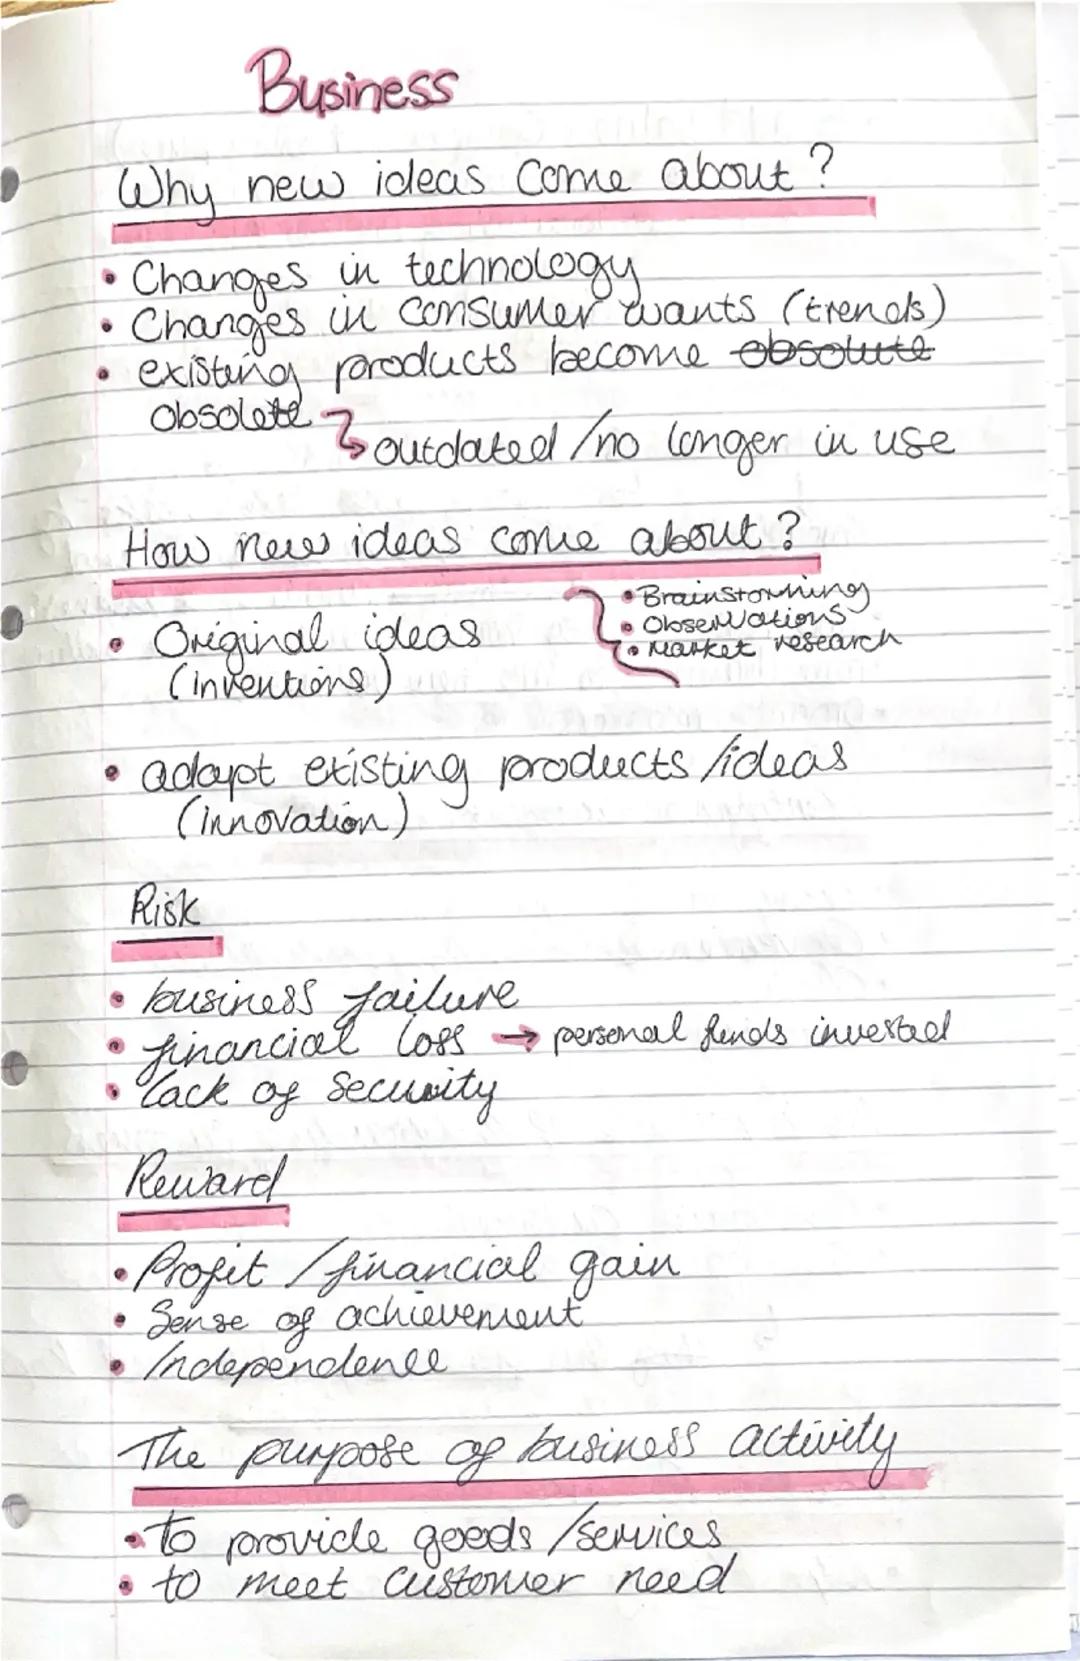 Business
Why new ideas come about?
• Changes in technology
• Changes in consumer wants (trends)
• existing products become obsolute
obsolete
outdated/no longer in use
How new ideas come about?
• Brainstorming
• Observations
• Market research
• Original ideas
(inventions)
• adapt existing products/ideas
(innovation)
Risk
• business failure
• financial loss → personal funds invested
• lack of security
Reward
• Profit/financial gain
• Sense of achievement
• Independence
The purpose of business activity
• to provide goods/services
• to meet customer need